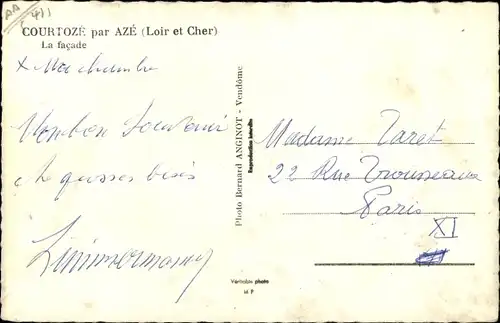 COURTOZÉ par AZÉ (Loir et Cher)
La façade
x Ma chambre
Mon bon Souvenir
de grosses bises
Zimmermann
Photo Bernard ANGINOT - Vendôme
Reproduction interdite
Madame Taret
22 Rue Trousseau
Paris
XI
Véritable photo
M P